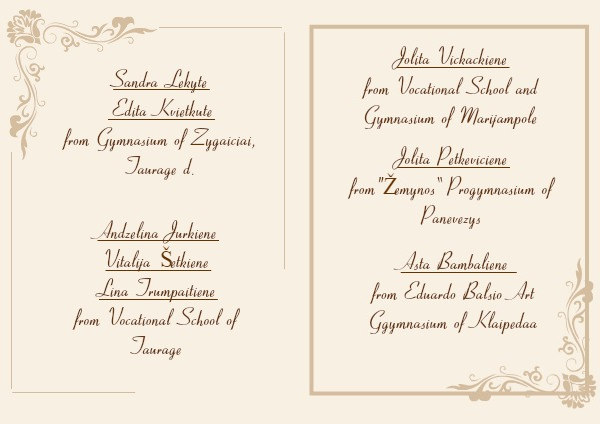 Sandra Lekyte
Edita Kvietkute
from Gymnasium of Zygaiciai,
Taurage d.
Andzelina Jurkiene
Vitalija Šetkiene
Lina Trumpaitiene
from Vocational School of
Taurage
Jolita Vickackiene
from Vocational School and
Gymnasium of Marijampole
Jolita Petkeviciene
from "Žemynos" Progymnasium of
Panevezys
Asta Bambaliene
from Eduardo Balsio Art
Ggymnasium of Klaipedaa